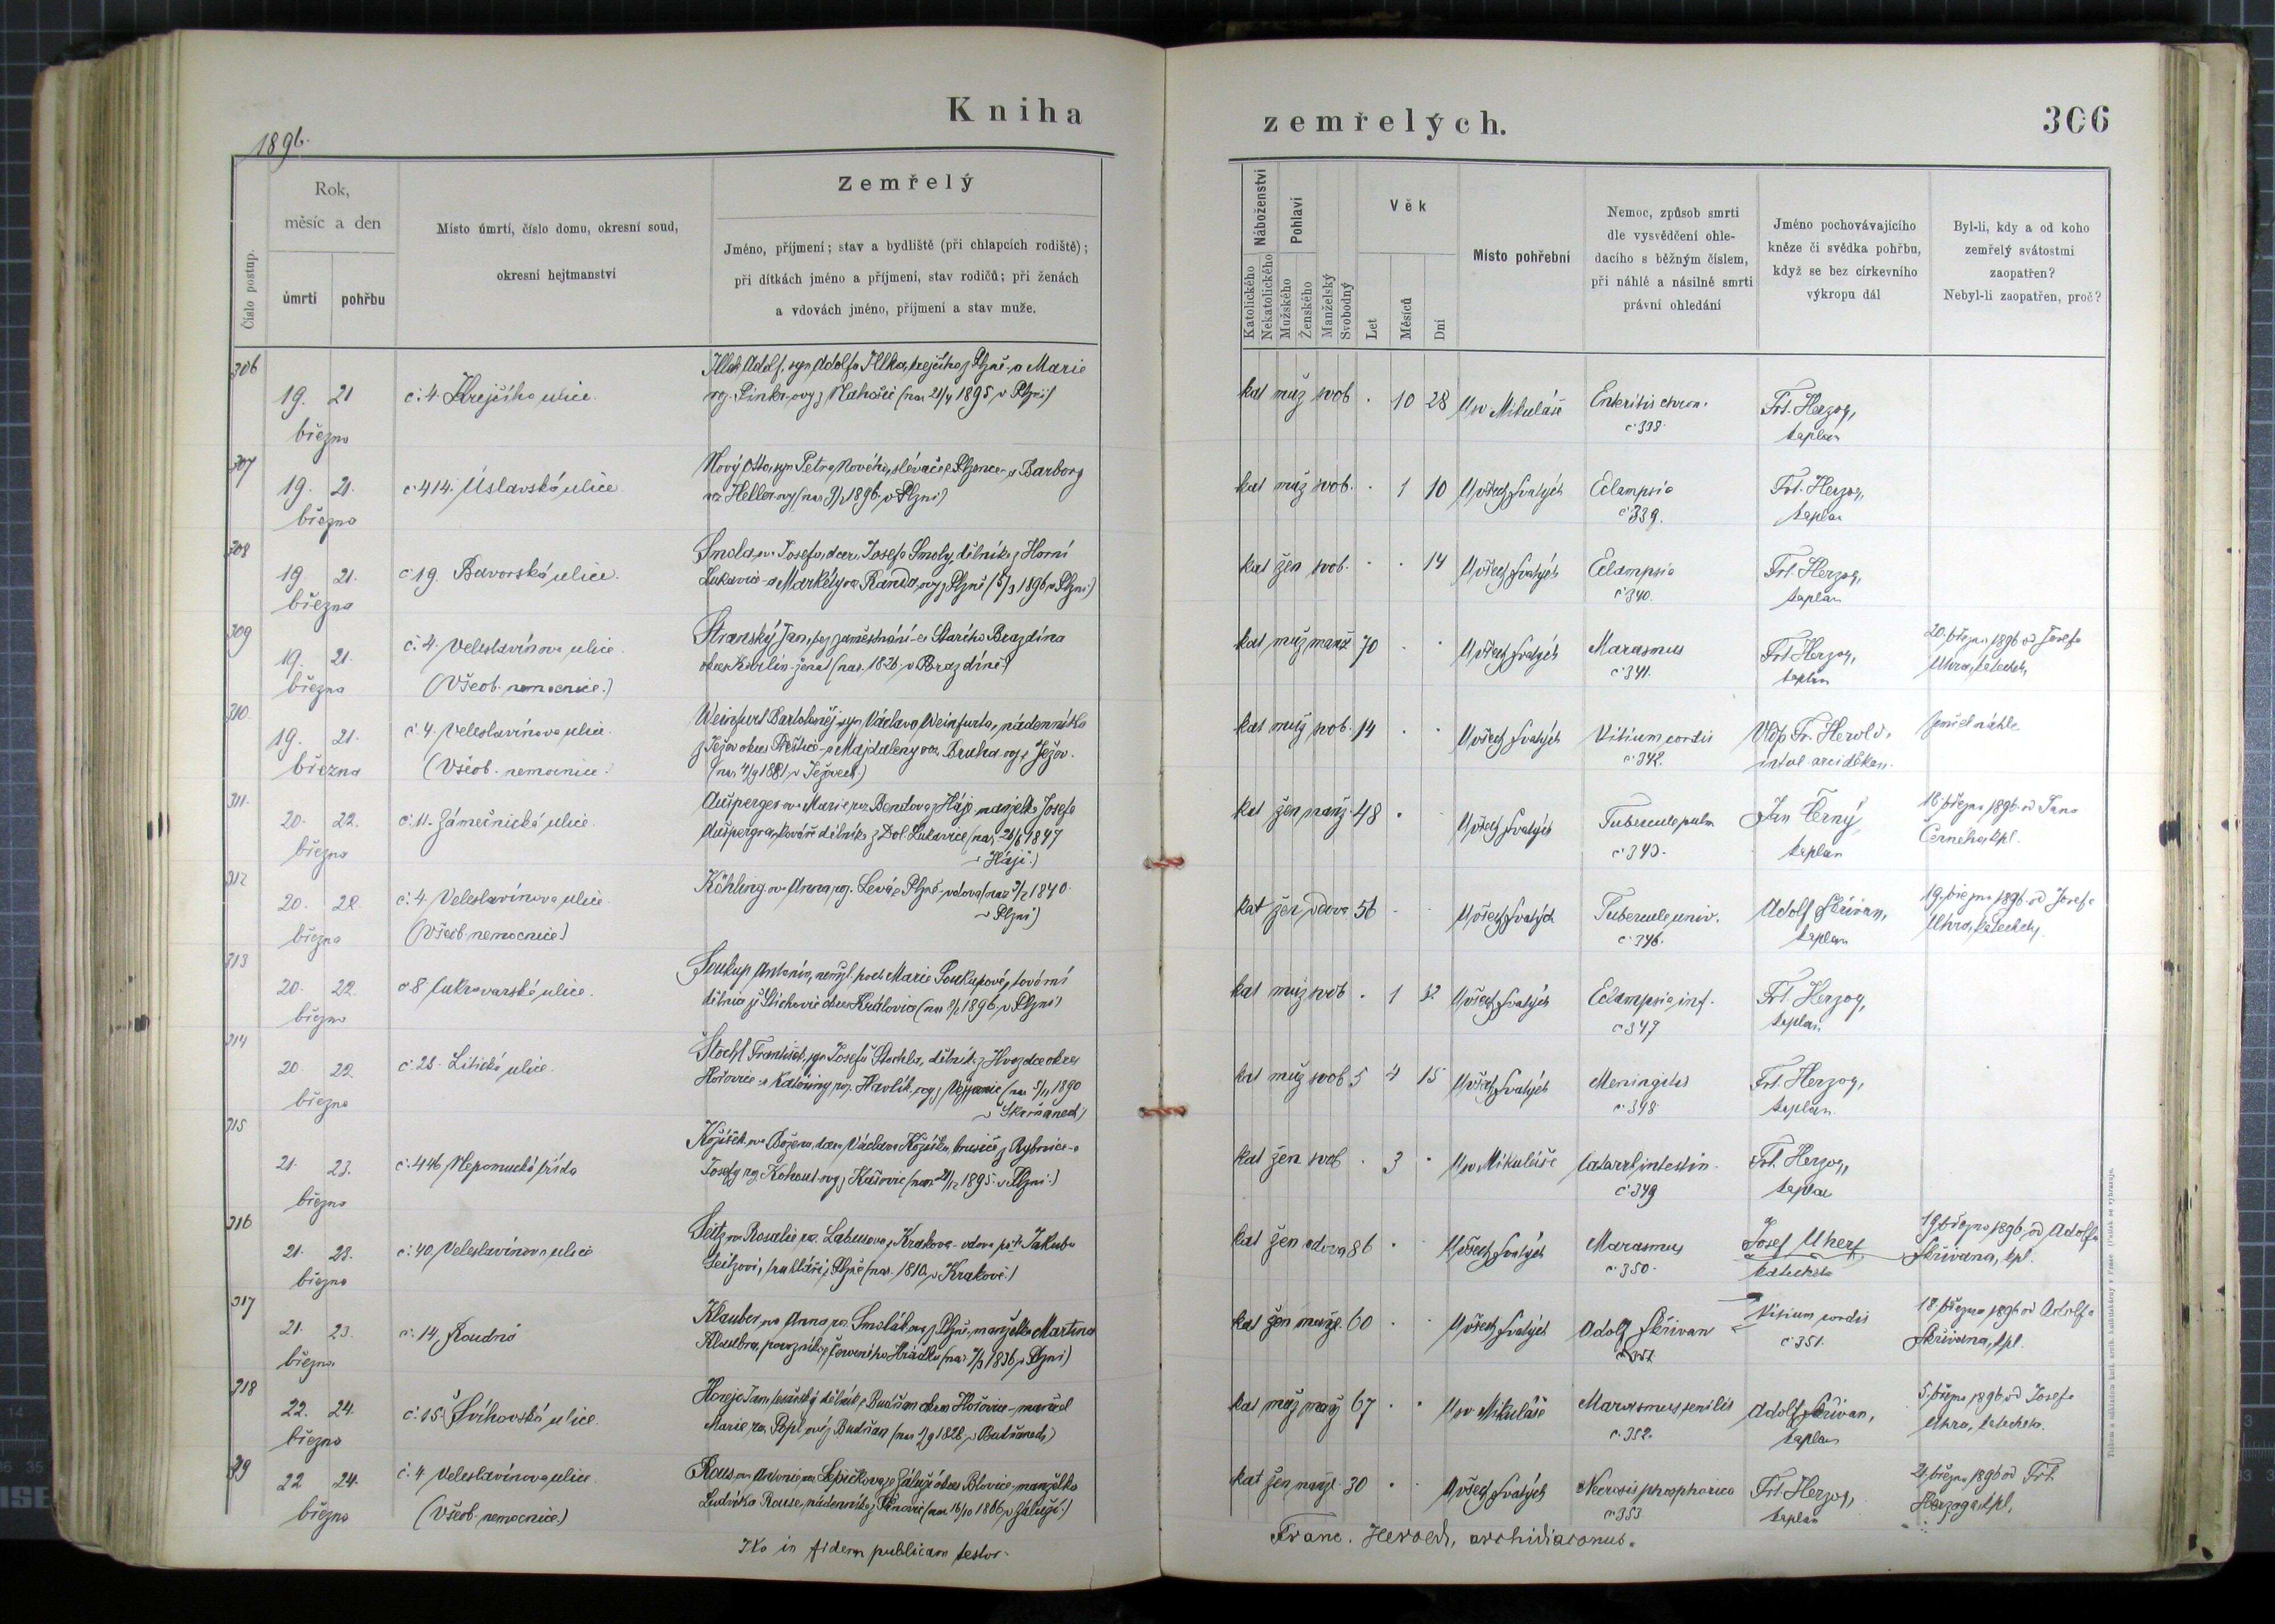 Kniha
zemřelých.
306
1896.
Číslo postup.
Rok,
měsíc a den
úmrtí
pohřbu
Místo úmrtí, číslo domu, okresní soud,
okresní hejtmanství
Zemřelý
Jméno, příjmení; stav a bydliště (při chlapcích rodiště);
při dítkách jméno a příjmení, stav rodičů; při ženách
a vdovách jméno, příjmení a stav muže.
Náboženství
Katolického
Nekatolického
Pohlaví
Mužského
Ženského
Manželský
Svobodný
Věk
Let
Měsíců
Dní
Místo pohřební
Nemoc, způsob smrti
dle vysvědčení ohle-
dacího s běžným číslem,
při náhlé a násilné smrti
právní ohledání
Jméno pochovávajícího
kněze či svědka pohřbu,
když se bez církevního
výkropu dál
Byl-li, kdy a od koho
zemřelý svátostmi
zaopatřen?
Nebyl-li zaopatřen, proč?
306
19. 21
března
č. 4. Krejčího ulice.
Illek Adolf, syn Adolfa Illka, krejčího z Plzně a Marie
roz. Pinkr-ovy z (nar. 21/4 1895 v Plzni)
kat muž svob . 10 28 U sv Mikuláše
Enteritis chron.
č 338.
Frt. Herzog,
kaplan
307
19. 21.
března
č 414. Úslavská ulice
Nový Otto, syn Petra Nového, slévače z Plzence a Barbory
roz Heller-ovy (nar 9/2 1896 v Plzni)
kat muž svob. . 1 10 U všech Svatých
Eclampsia
č 339.
Frt. Herzog,
kaplan
308
19 21.
března
č 19. Bavorská ulice.
Smola, ova Josefa, dcera Josefa Smoly, dělníka z Horní
Lukavice a Markéty roz Randa, ovy z Plzně (5/3 1896 v Plzni)
kat žen svob. . . 14 U všech Svatých
Eclampsia
č 340.
Frt Herzog,
kaplan
309
19. 21.
března
č. 4. Veleslavínova ulice.
(Všeob. nemocnice.)
Stranský Jan, bez zaměstnání ze Starého Brazdína
okres Karlín ženat (nar. 1826 v Brazdíně)
kat muž manž 70 . . U všech Svatých
Marasmus
č 341.
Frt Herzog,
kaplan
20. března 1896 od Josefa
Uhra, katechety
310
19. 21.
března
č. 4. Veleslavínova ulice.
(Všeob. nemocnice.
Weinfurt Bartoloměj, syn Václava Weinfurta, nádenníka
z Ježov okres Přeštice a Majdaleny roz. Bruha-ovy z Ježov.
(nar 4/9 1881 v Ježovech)
kat muž svob. 14 . . U všech Svatých
Vitium cordis
č 342.
Vldp. Fr. Herold,
inful. arciděkan.
Zemřel náhle
311.
20. 22.
března
č. 11. Zámečnická ulice.
Aušperger ova Marie roz. Bendova z Háje manželka Josefa
Aušpergra, kováře dělníka z Dol. Lukavice (nar. 26/6 1847
v Háji.)
kat žen manž. 48 . U všech Svatých
Tubercule pulm
č 343.
Jan Černý,
kaplan
18. března 1896 od Jana
Černého, kpl.
312
20. 22.
března
č. 4. Veleslavínova ulice.
(Všeob. nemocnice)
Köhling, ova Anna roz. Levá z Plzně, vdova (nar 9/2 1840.
v Plzni)
kat žen vdova. 56 . . U všech Svatých
Tubercule univ.
č. 346.
Adolf Skřivan,
kaplan
19. března 1896 od Josefa
Uhra, katechety.
313
20. 22.
března
č 8 Cukrovarská ulice.
Soukup Antonín, nemzl. poch Marie Soukupové, tovární
dělnice z Štichovic okres Kralovice (nar 1896 v Plzni)
kat muž svob . 1 U všech Svatých
Eclampsia inf.
č 347
Frt. Herzog,
kaplan
314
20 22.
března
č. 28. Litická ulice.
Stochl František, syn Josefa Stochla, dělníka z Hvozdce okres
Hořovice a Kateřiny roz. Havlík, ovy z (nar 5/11 1890
v )
kat muž svob 5 4 15 U všech Svatých
Meningitis
č 348
Frt. Herzog,
kaplan.
315
21. 23.
března
č. 446, Nepomucká třída
Kožíšek, ova Božena, dcera Václava Kožíška, brusiče z Rybnice a
Josefy roz. Kohout-ovy z Kašovic (nar. 21/12 1895 v Plzni.)
kat žen svob . 3 . U sv Mikuláše
Catarrh, intestin.
č. 349
Frt. Herzog,
kaplan
316
21. 23.
března
č. 40. Veleslavínova ulice
Seitz, ova Rosalie roz. Labusova z Krakova vdova po † Jakubu
Seitzovi, truhláři z Plzně (nar. 1810 v Krakově.)
kat žen vdova 86 . U všech Svatých
Marasmus
č 350.
Josef Uher
katecheta
19. března 1896 od Adolfa
Skřivana, kpl.
317
21. 23.
března
č. 14. Roudná
Klauber, ova Anna roz. Smolák, ovy z Plzně, manželka Martina
Klaubra, provazníka z Červeného Hrádku (nar 7/3 1836 v Plzni)
kat žen manž. 60 . . U všech Svatých
Adolf Skřivan
č 351.
Vitium cordis
č 351.
18. března 1896 od Adolfa
Skřivana, kpl.
318
22. 24.
března
č. 15. Švihovská ulice.
Horejc Jan, dělník z Budňan okres Hořovice manžel
Marie roz. Popl, ové z Budňan (nar 1828 v Budňanech)
kat muž manž 67 . . U sv Mikuláše
Marasmus senilis
č. 352.
Adolf Skřivan,
kaplan
5. března 1896 od Josefa
Uhra, katecheta.
319
22 24.
března
č. 4 Veleslavínova ulice.
(Všeob. nemocnice.)
Rous, ova Antonie roz Lepičkova z Zálužé okres Blovice manželka
Ludvíka Rouse, nádenníka z (nar. 16/10 1866 v Zálužé.)
kat žen manž. 30 . . U všech Svatých
Necrosis phosphorica
č 353
Frt. Herzog,
kaplan
21. března 1896 od Frt.
Herzoga, kpl.
Ita in fidem publicam testor.
Franc. Herold, archidiaconus.